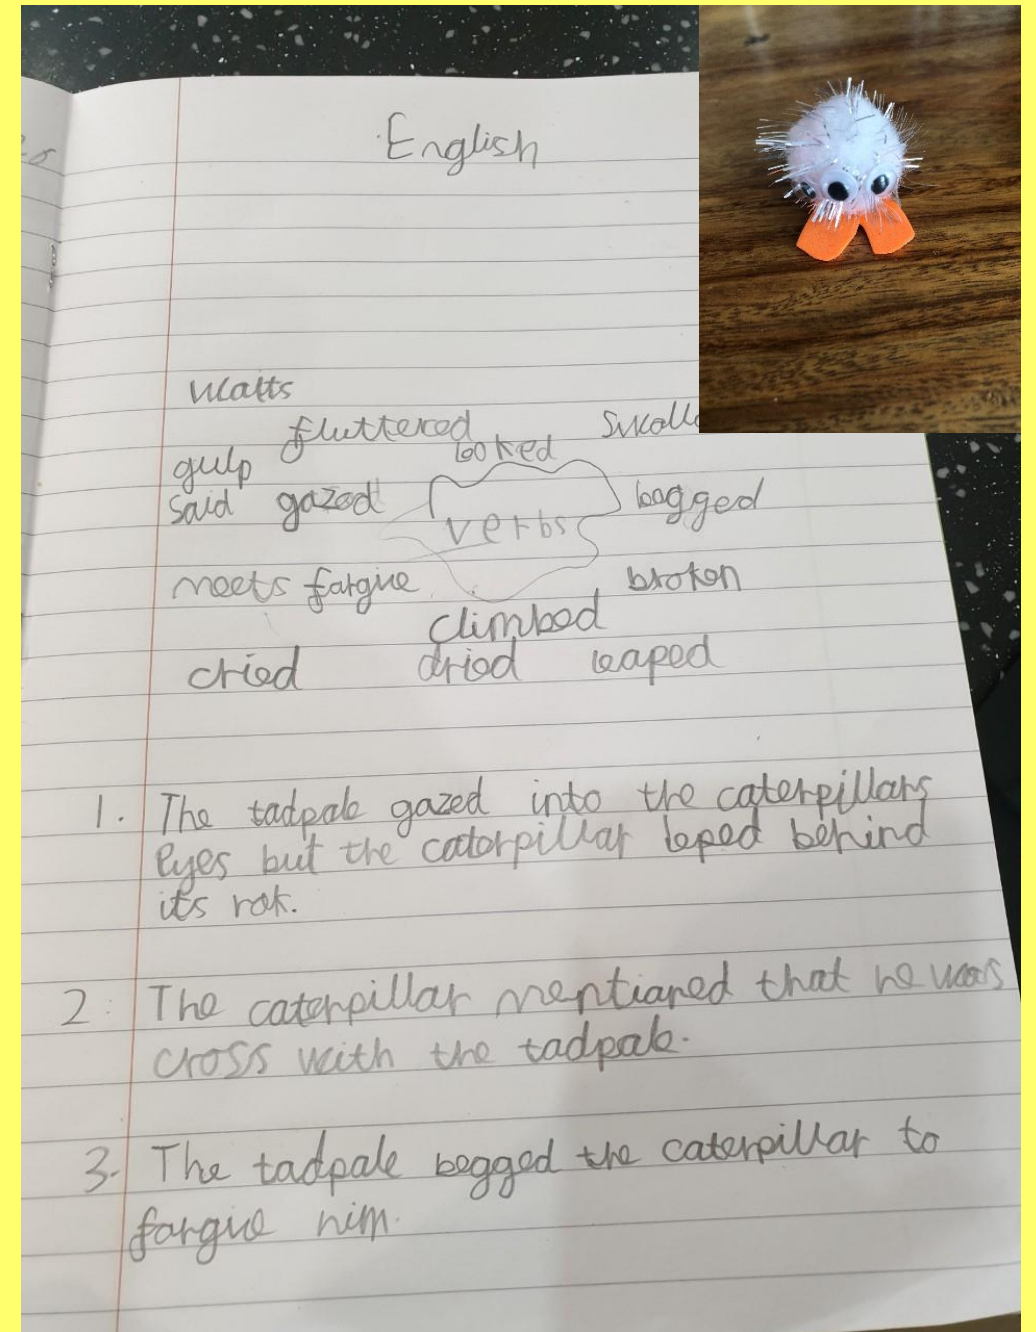 English
waits
fluttered
looked
gulp
said gazed
verbs
bagged
meets fargive
broken
climbed
cried dried leaped
1. The tadpale gazed into the caterpillars
eyes but the caterpillar leped behind
its rok.
2. The caterpillar mentianed that he was
cross with the tadpale.
3. The tadpale begged the caterpillar to
fargive him.